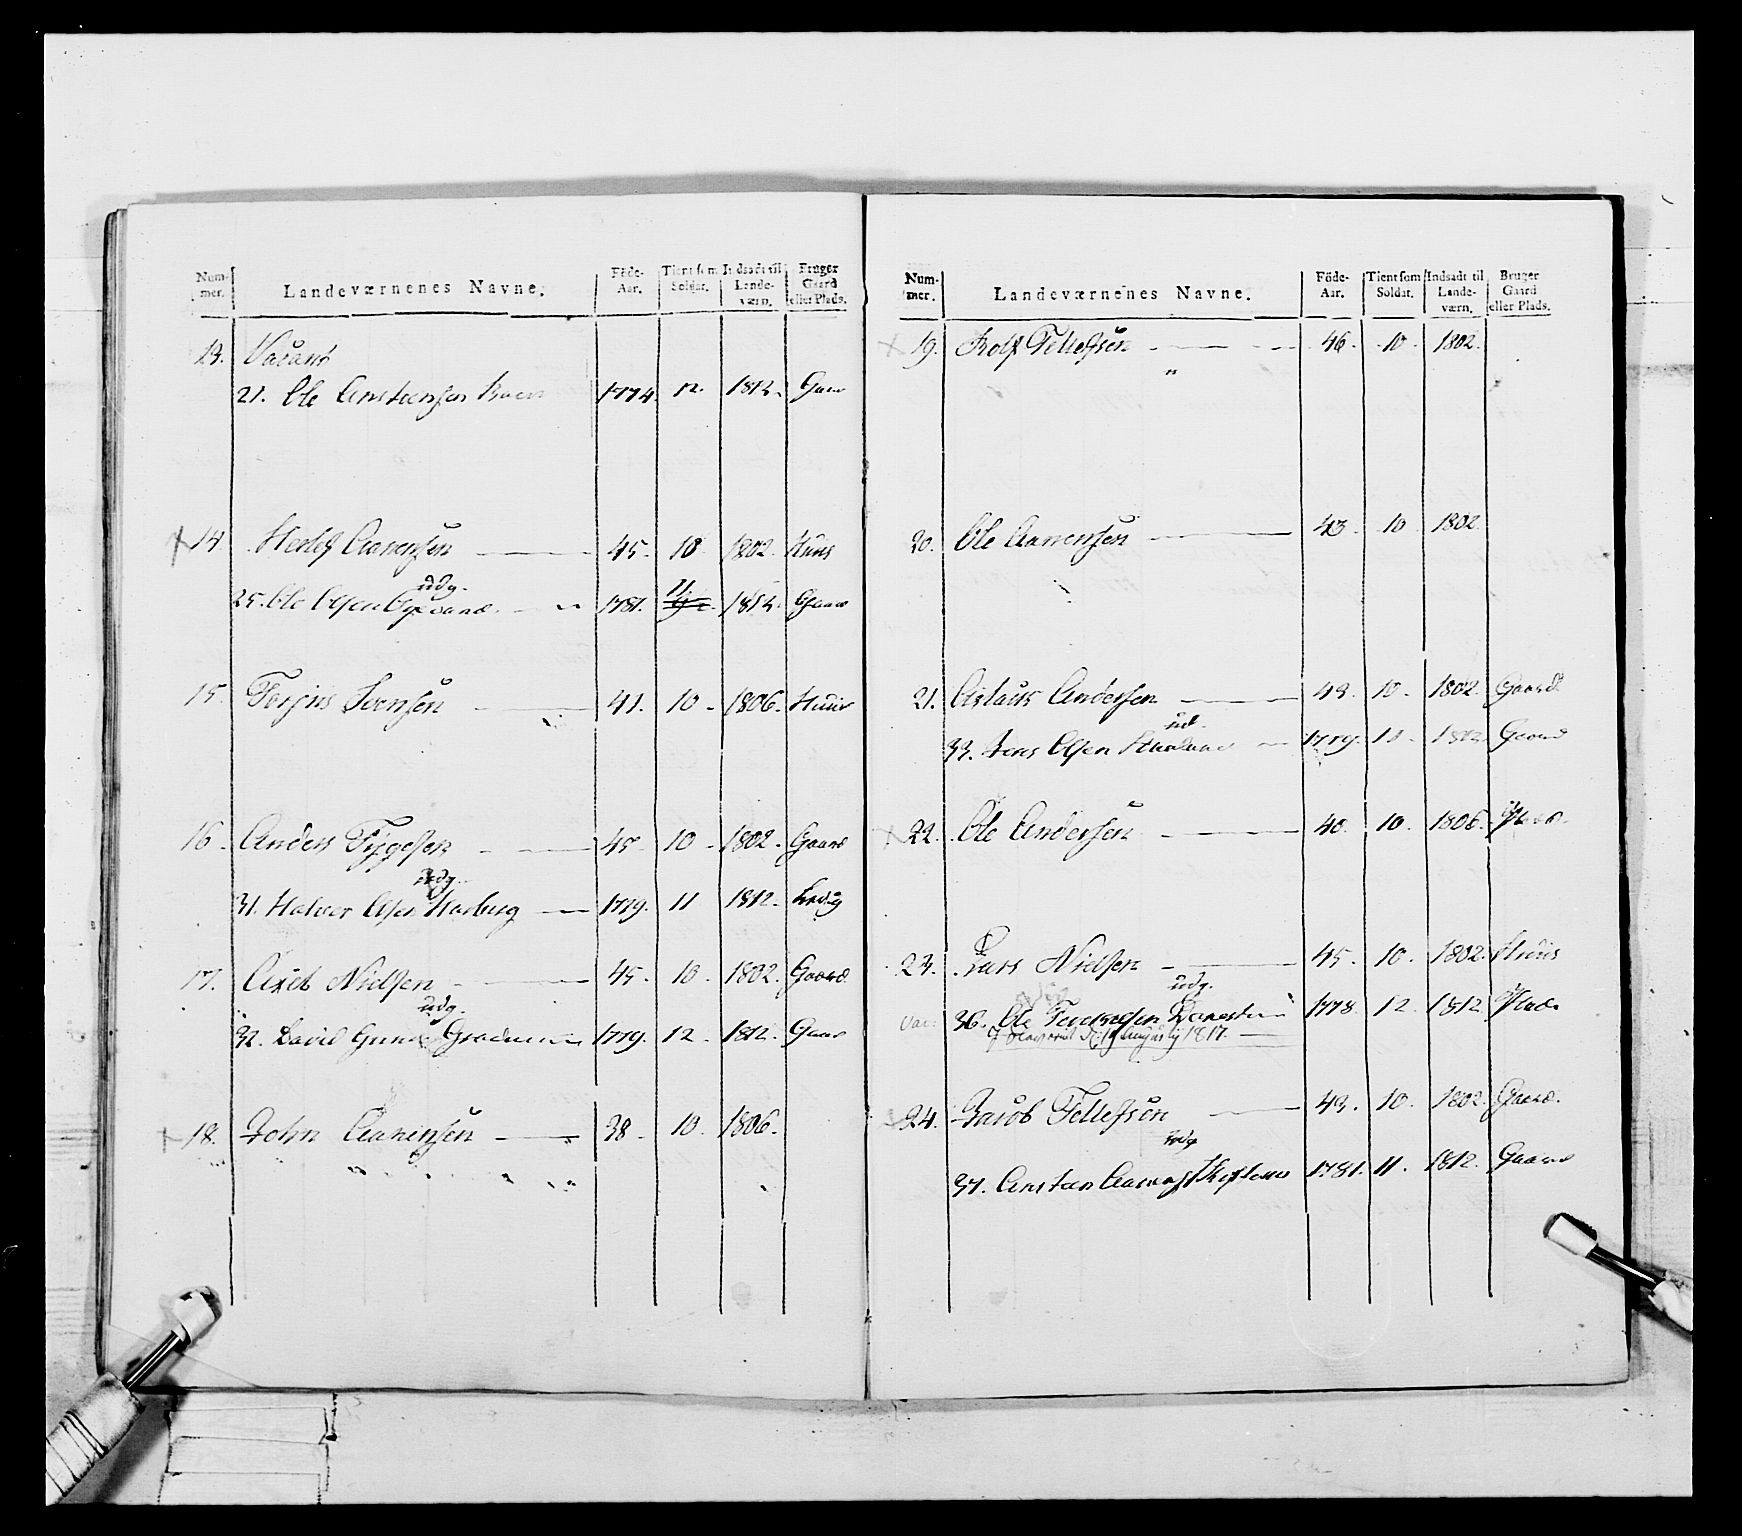 Num-mer. Landeværnenes Navne. Föde-Aar. Tient som Soldat. Indsadt til Lande-værn. Bruger Gaard eller Plads.
13. Vacant
21. Ole 1774. 12. 1812. Gaard
14. Aanensen 45. 10. 1802. Huus
udg.
25. Ole Olsen 1781. 11 1812. Gaard
15. Svensen 41. 10. 1806. Huus
16. Anders Tygesen 45 10 1802. Gaard
udg.
31. Halvor Olsen 1779. 11 1812. Ledig
17. Axel Nielsen 45. 10. 1802. Gaard
udg.
32. David 1779. 12. 1812. Gaard
18. John Aanensen 38. 10. 1806.
Num-mer. Landeværnenes Navne. Föde-Aar. Tient som Soldat. Indsadt til Lande-værn. Bruger Gaard eller Plads.
19. Rolf Tellefsen 46. 10. 1802.
20. Ole Aanensen 43. 10. 1802
21. Aslack Andersen 43. 10. 1802. Gaard
ud.
33. Jens Olsen 1779. 1812. Gaard
22. Ole Andersen 40. 10. 1806. Plads
23. Lars Nielsen 45. 10. 1802. Huus
udg.
36. Ole 1778. 12. 1812. Plads
1817.
24. Jacob Tellefsen 43. 10. 1802. Gaard.
udg
37. 1781. 11. 1812. Gaard